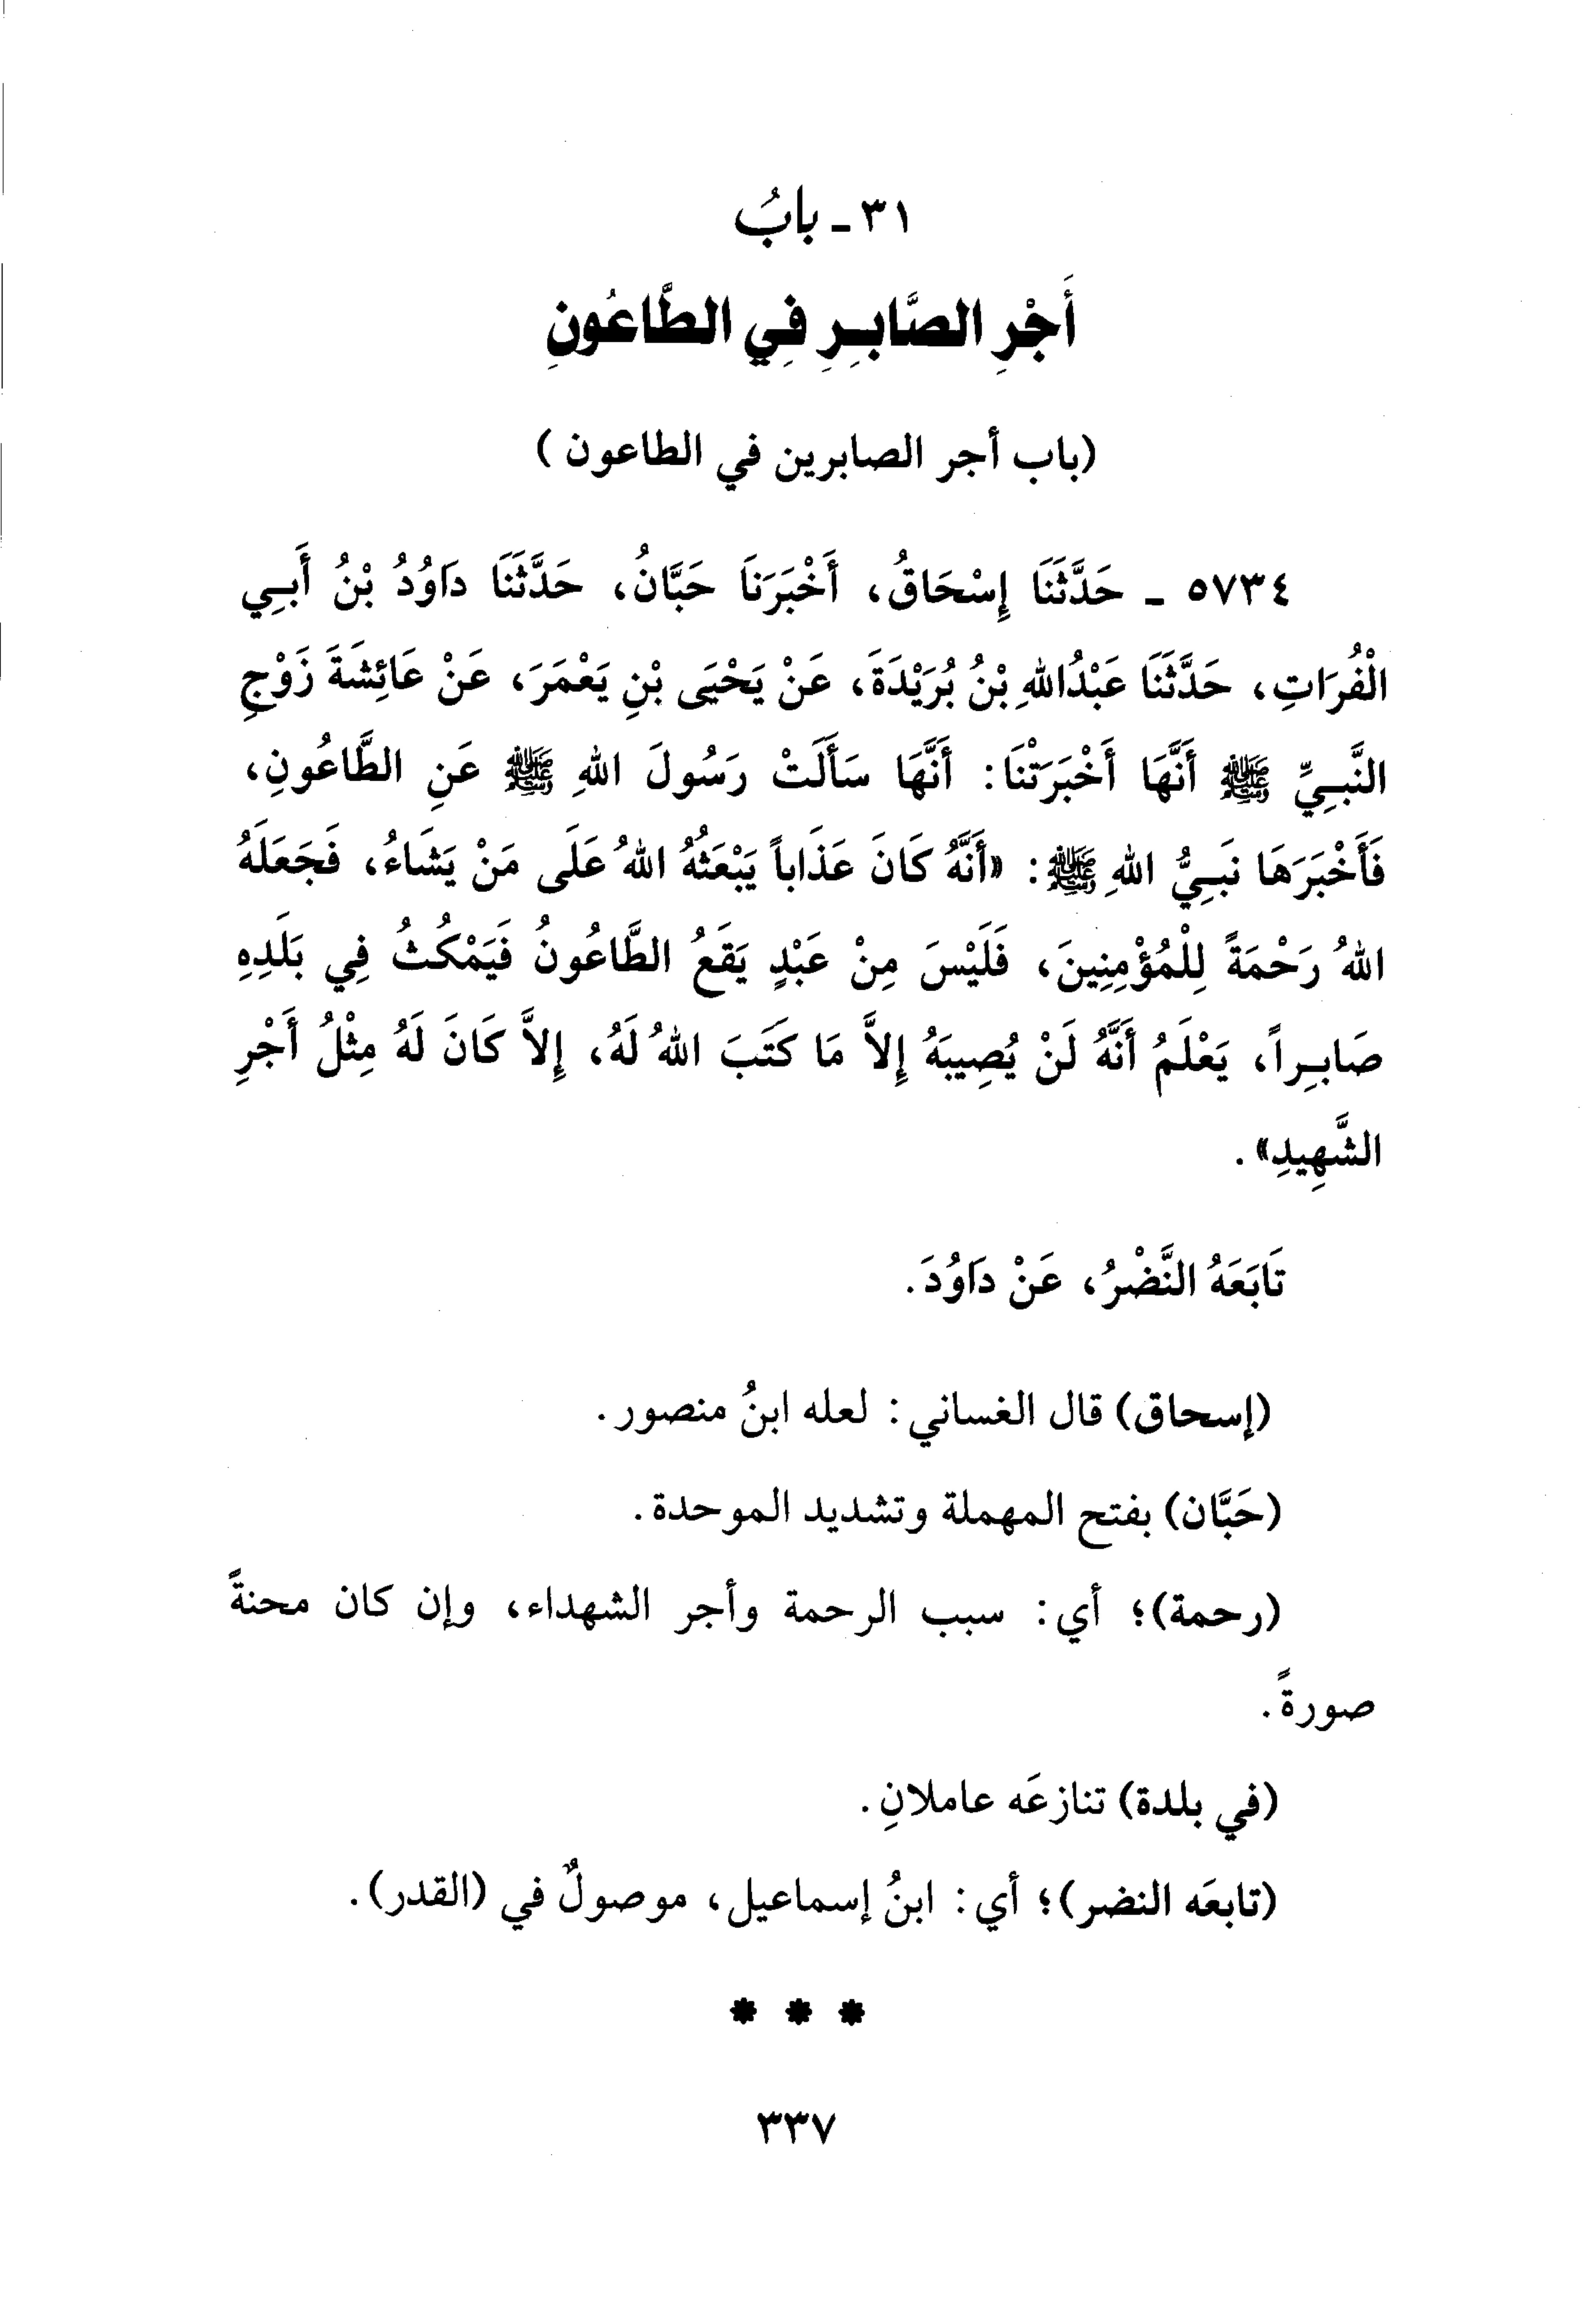 ٣١ - بابُ
أَجْرِ الصَّابِرِ فِي الطَّاعُونِ
(باب أجر الصابرين في الطاعون)
٥٧٣٤ - حَدَّثَنَا إِسْحَاقُ، أَخْبَرَنَا حَبَّانُ، حَدَّثَنَا دَاوُدُ بْنُ أَبِي
الْفُرَاتِ، حَدَّثَنَا عَبْدُاللهِ بْنُ بُرَيْدَةَ، عَنْ يَحْيَى بْنِ يَعْمَرَ، عَنْ عَائِشَةَ زَوْجِ
النَّبِيِّ ﷺ أَنَّهَا أَخْبَرَتْنَا: أَنَّهَا سَأَلَتْ رَسُولَ اللهِ ﷺ عَنِ الطَّاعُونِ،
فَأَخْبَرَهَا نَبِيُّ اللهِ ﷺ: «أَنَّهُ كَانَ عَذَاباً يَبْعَثُهُ اللهُ عَلَى مَنْ يَشَاءُ، فَجَعَلَهُ
اللهُ رَحْمَةً لِلْمُؤْمِنِينَ، فَلَيْسَ مِنْ عَبْدٍ يَقَعُ الطَّاعُونُ فَيَمْكُثُ فِي بَلَدِهِ
صَابِراً، يَعْلَمُ أَنَّهُ لَنْ يُصِيبَهُ إِلاَّ مَا كَتَبَ اللهُ لَهُ، إِلاَّ كَانَ لَهُ مِثْلُ أَجْرِ
الشَّهِيدِ».
تَابَعَهُ النَّضْرُ، عَنْ دَاوُدَ.
(إسحاق) قال الغساني: لعله ابنُ منصور.
(حَبَّان) بفتح المهملة وتشديد الموحدة.
(رحمة)؛ أي: سبب الرحمة وأجر الشهداء، وإن كان محنةً
صورةً.
(في بلدة) تنازعَه عاملانِ.
(تابعَه النضر)؛ أي: ابنُ إسماعيل، موصولٌ في (القدر).
* * *
٣٣٧